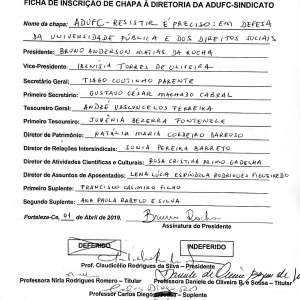 FICHA DE INSCRIÇÃO DE CHAPA À DIRETORIA DA ADUFC-SINDICATO
Nome da chapa: ADUFC-RESISTIR É PRECISO: EM DEFESA
DA UNIVERSIDADE PÚBLICA E DOS DIREITOS SOCIAIS
Presidente: BRUNO ANDERSON MATIAS DA ROCHA
Vice-Presidente: IRENÍSIA TORRES DE OLIVEIRA
Secretário Geral: TIAGO COUTINHO PARENTE
Primeiro Secretário: GUSTAVO CÉSAR MACHADO CABRAL
Tesoureiro Geral: ANDRÉ VASCONCELOS FERREIRA
Primeiro Tesoureiro: JUVÊNIA BEZERRA FONTENELE
Diretor de Patrimônio: NATÁLIA MARIA CORDEIRO BARROSO
Diretor de Relações Intersindicais: SONIA PEREIRA BARRETO
Diretor de Atividades Científicas e Culturais: ROSA CRISTINA PRIMO GADELHA
Diretor de Assuntos de Aposentados: LENA LÚCIA ESPÍNDOLA RODRIGUES FIGUEIREDO
Primeiro Suplente: FRANCISCO CASIMIRO FILHO
Segundo Suplente: ANA PAULA RABELO E SILVA
Fortaleza-Ce, 01 de Abril de 2019. Bruno Rocha
Assinatura do Presidente
DEFERIDO INDEFERIDO
Prof. Claudicélio Rodrigues da Silva – Presidente
Professora Nirla Rodrigues Romero – Titular Professora Daniele de Oliveira B. e Sousa – Titular
Professor Carlos Diego – Suplente